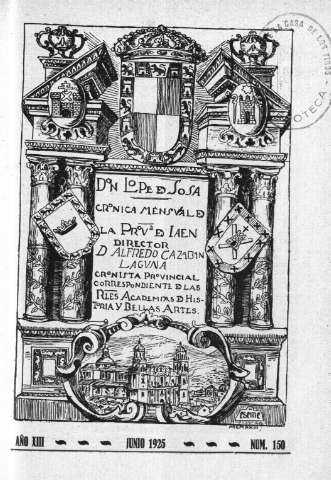 DON LOPE D SOSA
CRONICA MENSVAL D
LA PROVᴬ D IAEN
DIRECTOR
D ALFREDO CAZABAN
LAGUNA
CRONISTA PROVINCIAL
CORRESPONDIENTE D LAS
RLES ACADEMIAS D HIS-
TORIA Y BELLAS ARTES.
AÑO XIII JUNIO 1925 NUM. 150
LA CASA DE LOS TIROS